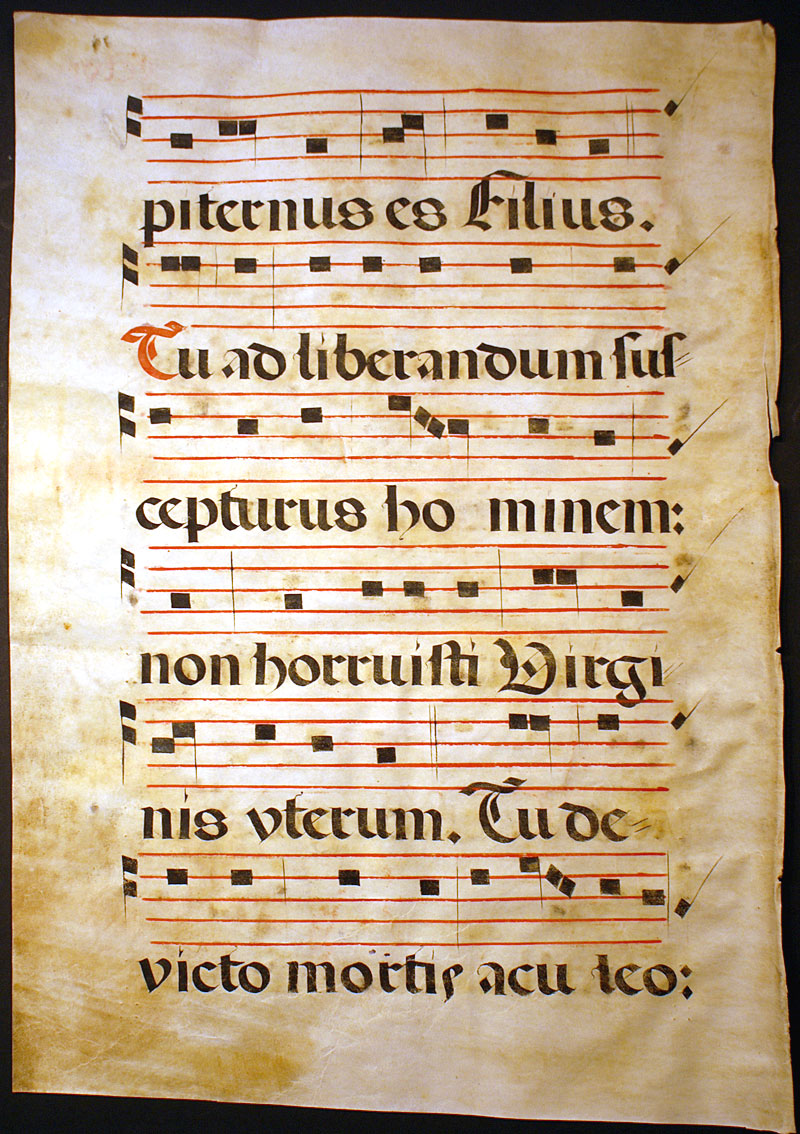 piternus es Filius.
Tu ad liberandum sus⸗
cepturus ho minem:
non horruisti Virgi⸗
nis vterum. Tu de⸗
victo mortis acu leo: